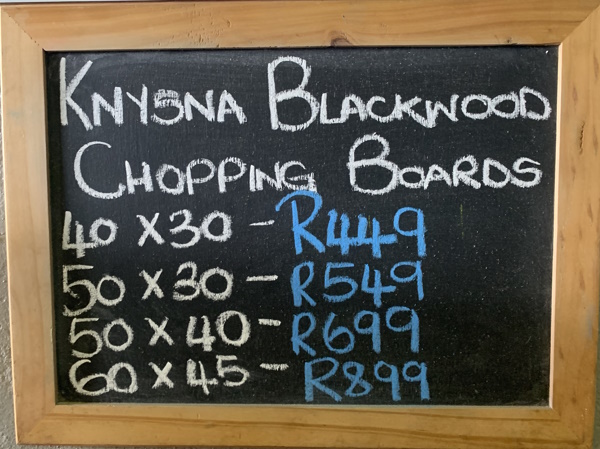 KNYSNA BLACKWOOD
CHOPPING BOARDS
40 x 30 - R449
50 x 30 - R549
50 x 40 - R699
60 x 45 - R899